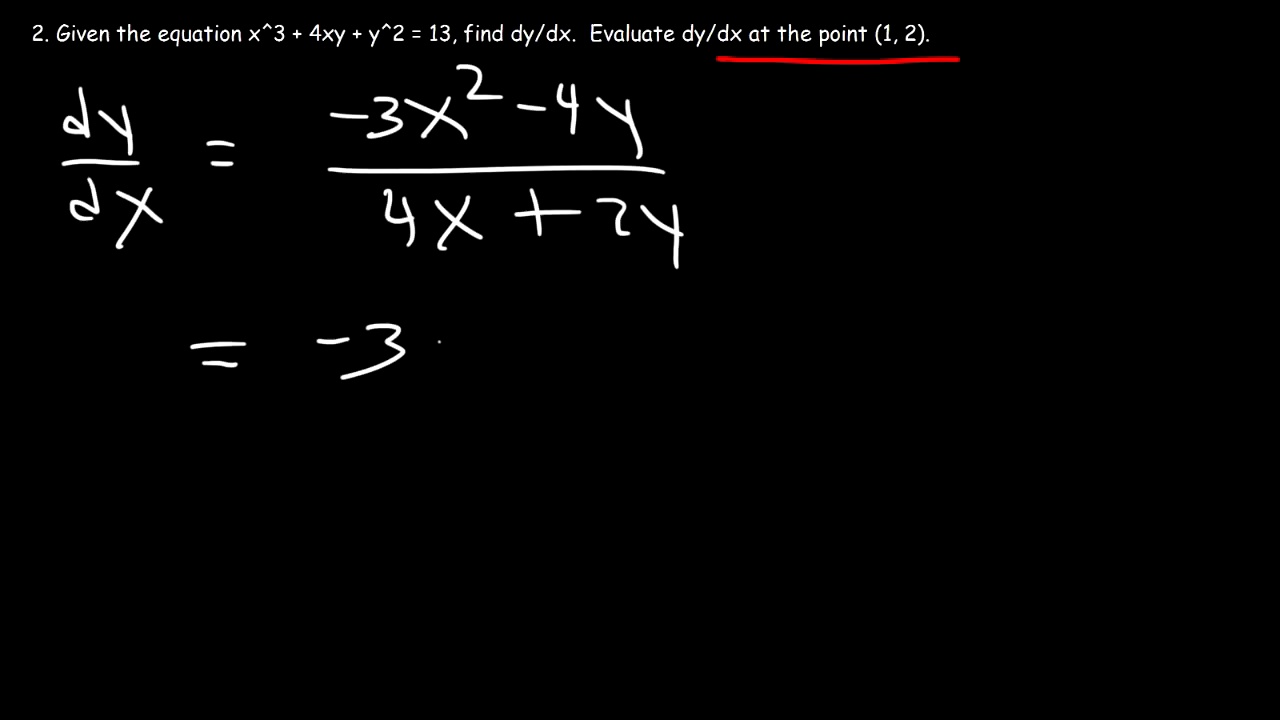 2. Given the equation x^3 + 4xy + y^2 = 13, find dy/dx. Evaluate dy/dx at the point (1, 2).
dy/dx = (-3x² - 4y)/(4x + 2y)
= -3